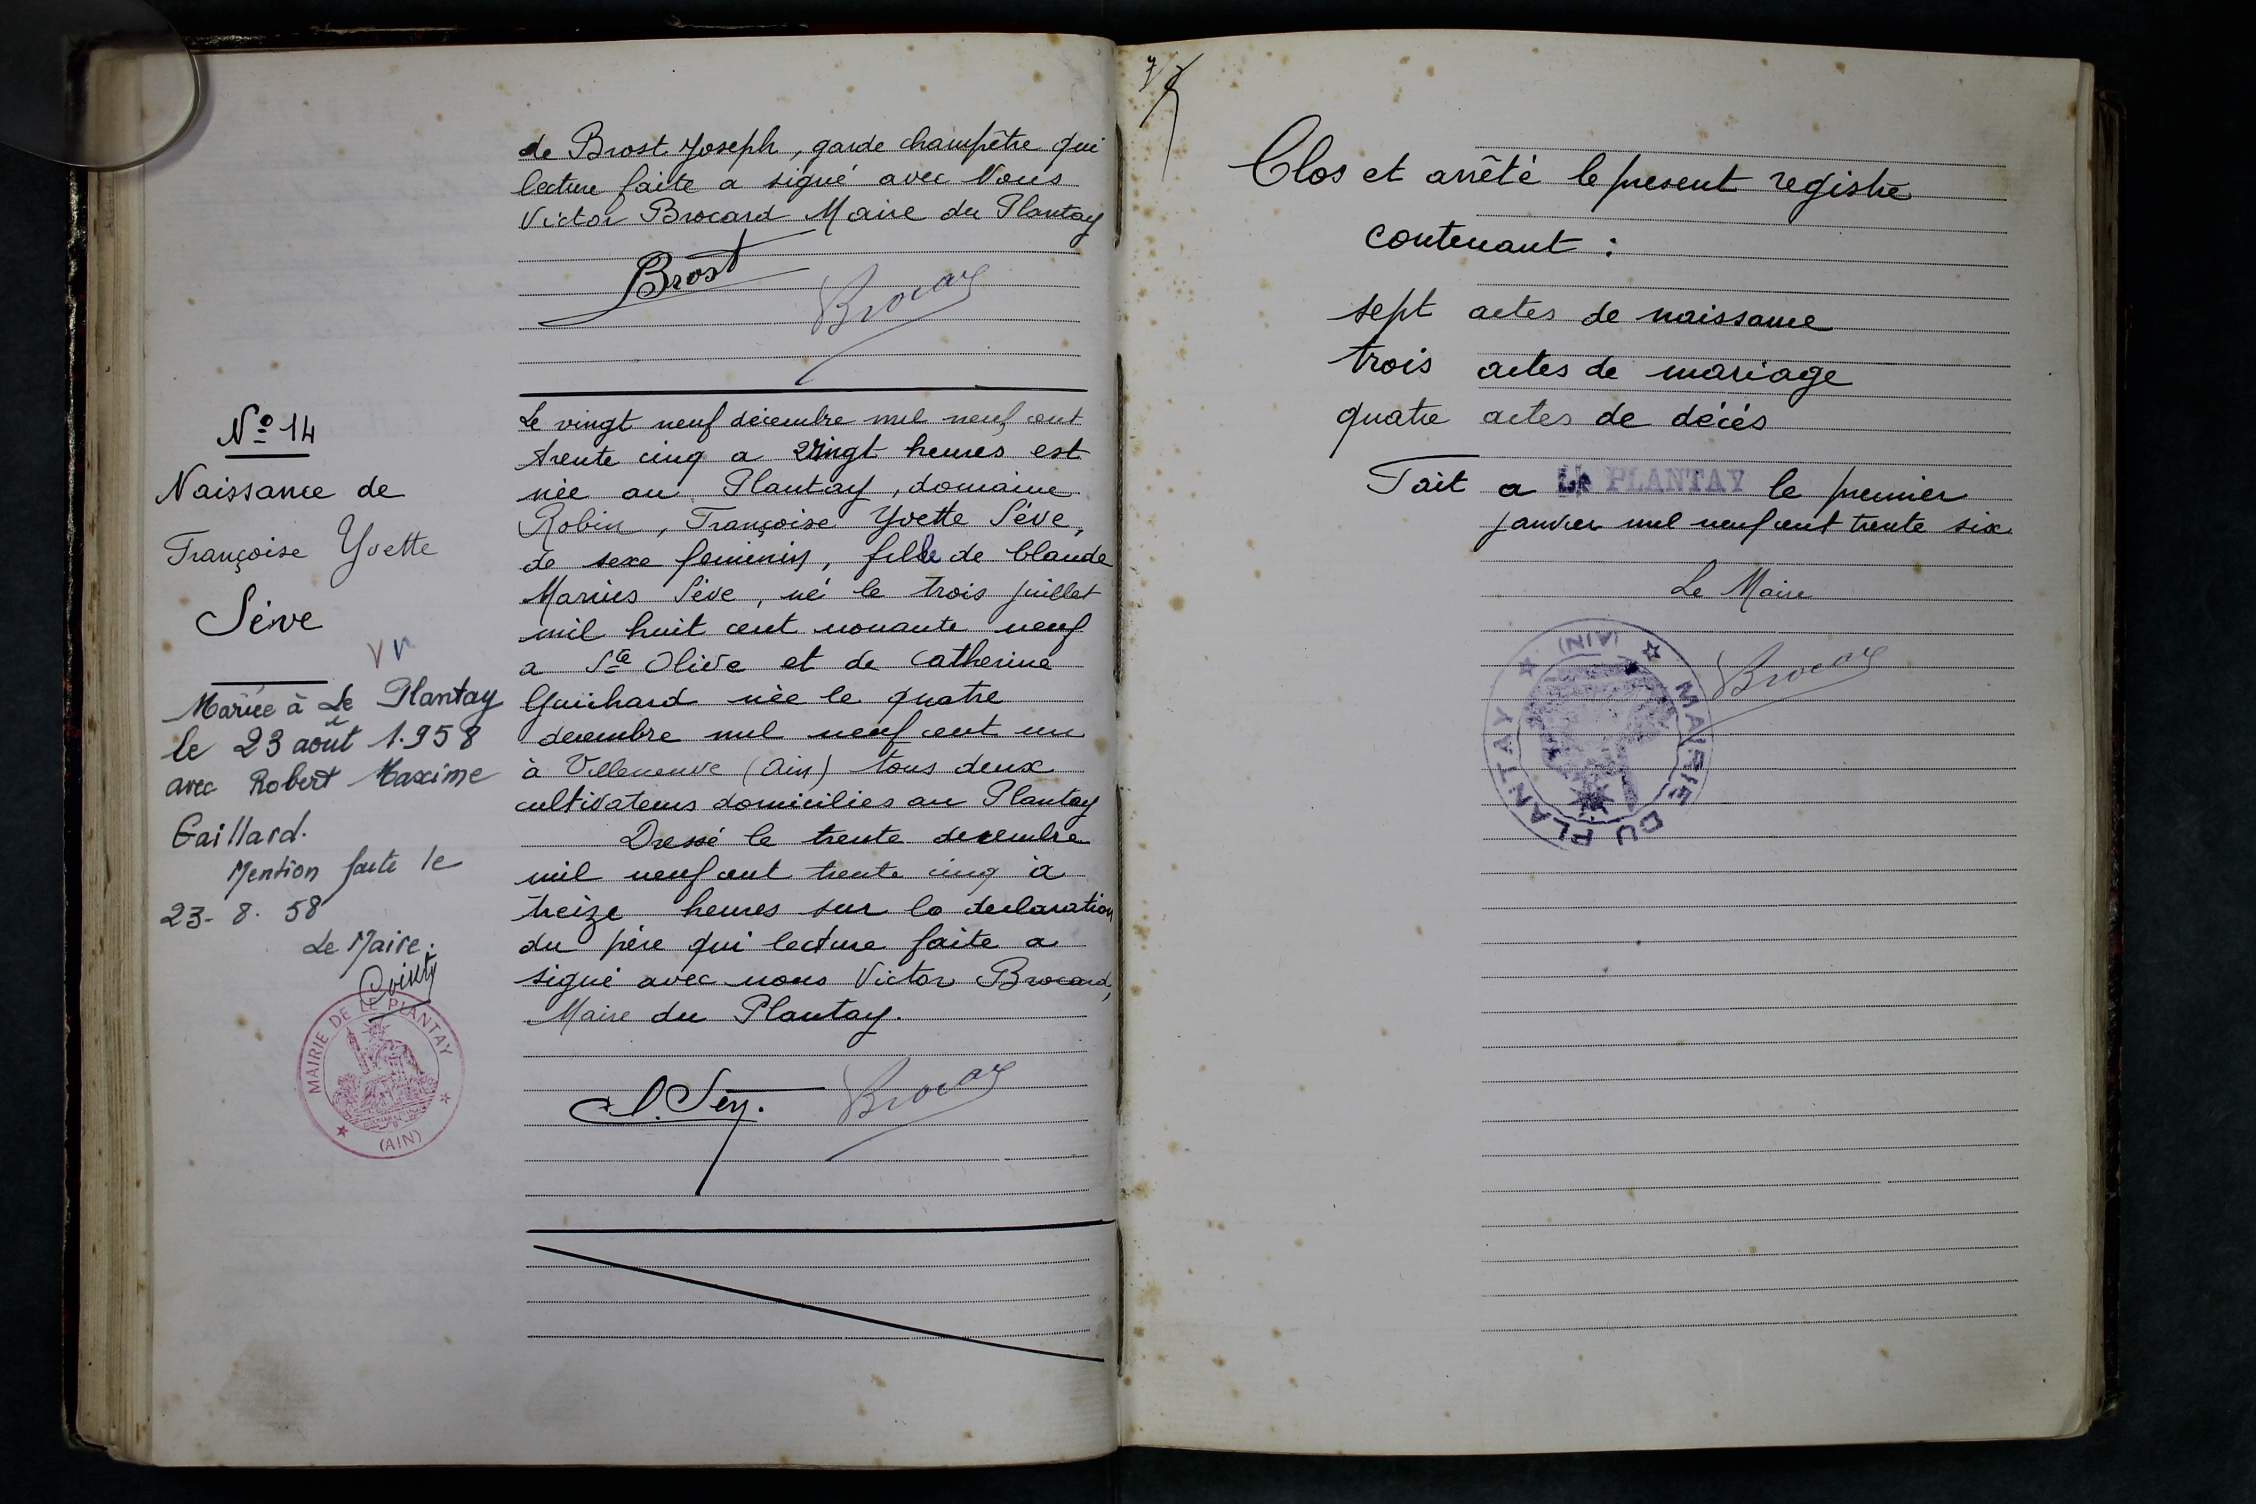 de Brost Joseph, garde champêtre qui
lecture faite a signé avec Nous
Victor Brocard Maire du Plantay
Brost
Brocard
Nº 14
Naissance de
Françoise Yvette
Sève
Mariée à Le Plantay
le 23 août 1.958
avec Robert Maxime
Gaillard.
Mention faite le
23- 8. 58
Le Maire.
MAIRIE DE LE PLANTAY
(AIN)
Le vingt neuf décembre mil neuf cent
trente cinq a vingt heures est
née au Plantay, domaine
Robin, Françoise Yvette Sève,
de sexe feminin, fille de Claude
Marius Sève, né le trois juillet
mil huit cent nonante neuf
a Ste Olive et de Catherine
Guichard née le quatre
decembre mil neuf cent un
à Villeneuve (Ain) tous deux
cultivateurs domiciliés au Plantay
Dressé le trente decembre
mil neuf cent trente cinq à
treize heures sur la declaration
du père qui lecture faite a
signé avec nous Victor Brocard,
Maire du Plantay.
Brocard
Clos et arrêté le present registre
contenant :
sept actes de naissance
trois actes de mariage
quatre actes de décés
Fait a LE PLANTAY le premier
janvier mil neuf cent trente six
Le Maire
Brocard
MAIRIE DU PLANTAY
(AIN)